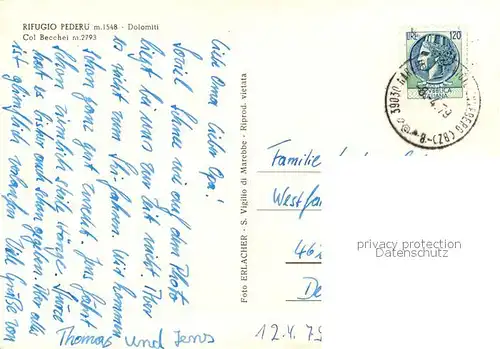 RIFUGIO PEDERÙ m.1548 - Dolomiti
Col Becchei m.2793
LIRE 120
REPUBBLICA
ITALIANA
39030
Liebe Oma, lieber Opa!
Soviel Schnee wie auf dem Photo
liegt bei uns zur Zeit nicht. Aber
es reicht zum Skifahren. Wir kommen
schon ganz gut zurecht. Jens fährt
schon ziemlich steile Hänge. Stürze
hat es bisher auch schon gegeben. Aber alles
ist glimpflich verlaufen. Viele Grüße von
Thomas und Jens
Foto ERLACHER - S. Vigilio di Marebbe - Riprod. vietata
Familie
Westfa
46
De
12.4.79
privacy protection
Datenschutz